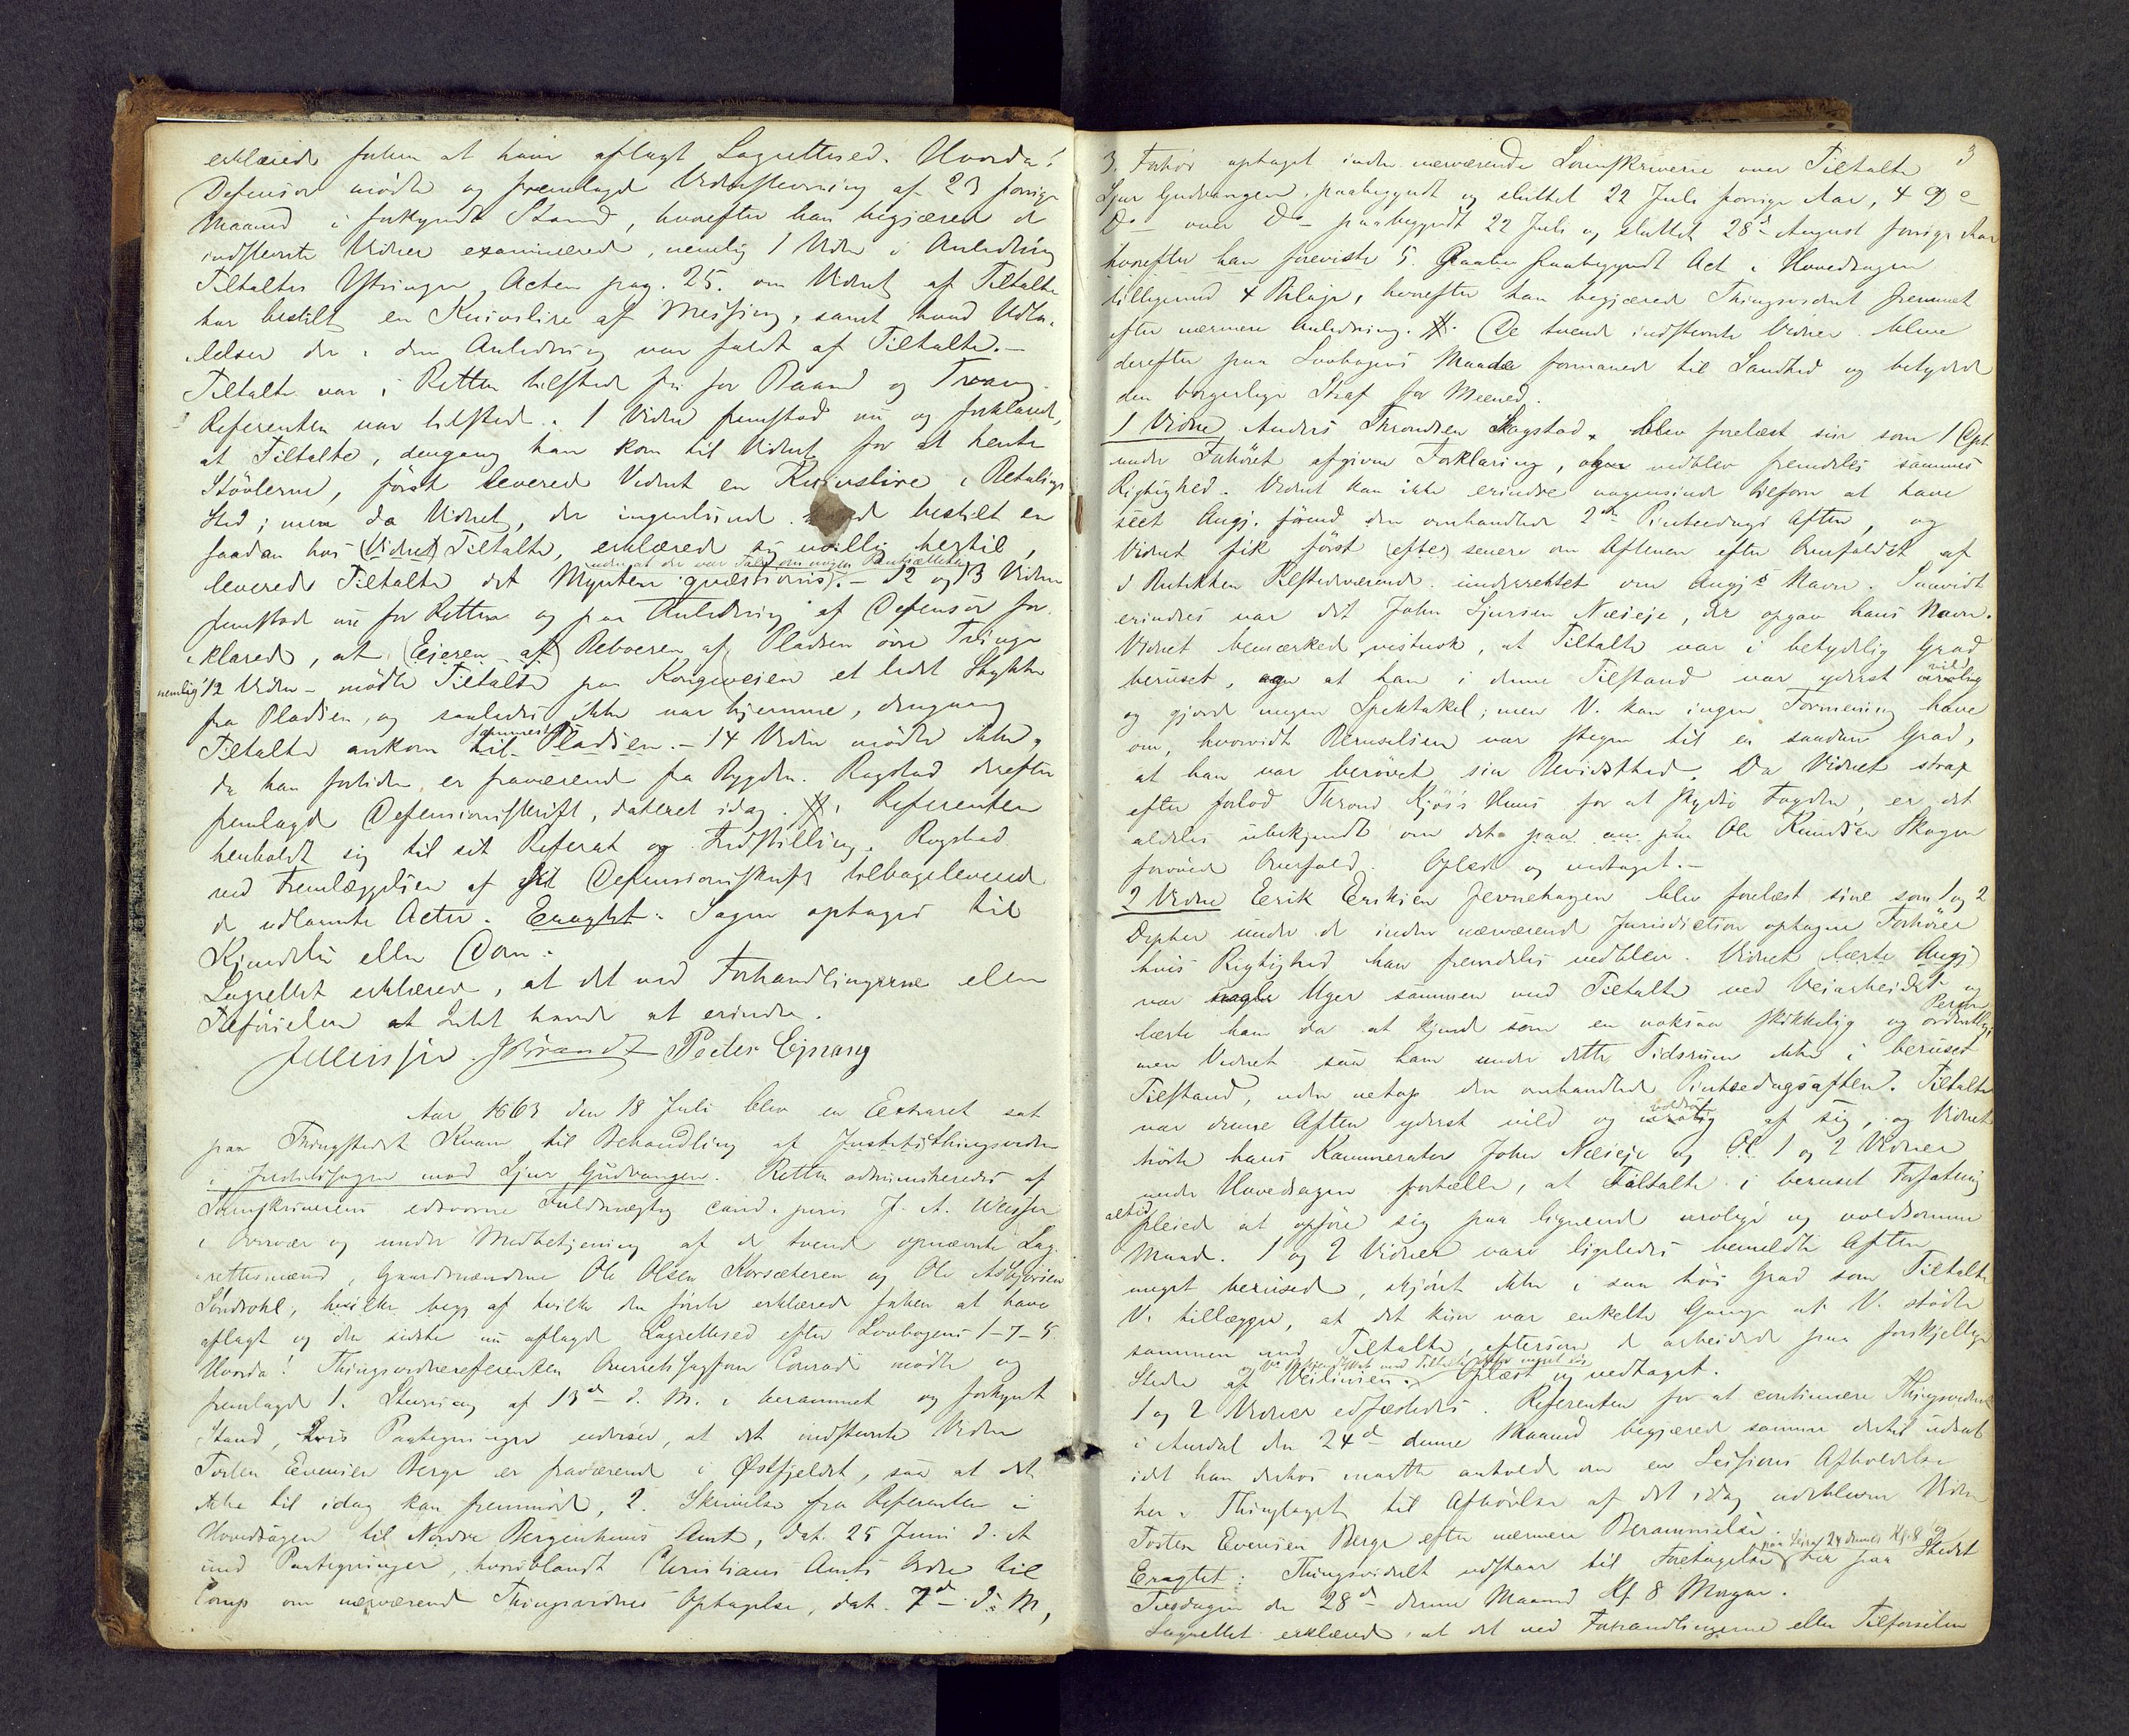 erklærede forhen at have aflagt Lagrettesed. Hvorda!
Defensor mødte og fremlagde Vidnestevning af 23 forrige
Maaned i forkyndt Stand, hvorefter han begjærede de
indstevnte Vidner examinerede, nemlig 1 Vidne i Anledning
Tiltaltes Ytringer Acten pag. 25. om Vidnet af Tiltalte
har bestilt en Knivslire af Messing, samt hvad Udta-
lelser der i den Anledning var faldt af Tiltalte.-
Tiltalte var i Retten tilstede fri for Baand og Tvang.
Referenten var tilstede. 1 Vidne fremstod nu og forklarede,
at Tiltalte, dengang han kom til Vidnet for at hente
Støvlerne, først leverede Vidnet en Knivslire i Betalings
Sted; men da Vidnet, der ingenlunde havde bestilt en
saadan hos (Vidnet) Tiltalte, erklærede sig uvillig hertil,
uden at der var Tale om nogen Pantsættelse
leverede Tiltalte det Mynten quæstionis).- 12 og 13 Vidne
fremstod nu for Retten og paa Anledning af Defensor for-
klarede, at (Eieren af) Beboeren af Pladsen øvre
nemlig 12 Vidne - mødte Tiltalte paa Kongeveien et lidet Stykke
fra Pladsen, og saaledes ikke var hjemme, dengang
Tiltalte ankom til sammesteds Pladsen.- 14 Vidne mødte ikke,
da han fortiden er fraværende fra Bygden. Rogstad derefter
fremlagde Defensionsskrift, dateret idag. #. Referenten
henholdt sig til sit Referat og Indstilling. Rogstad
ved Fremlæggelsen af sit Defensionsskrift tilbageleverede
de udlaante Acter. Eragtet: Sagen optages til
Kjendelse eller Dom.
Lagrettet erklærede, at det ved Forhandlingerne eller
Tilførselen at Intet havde at erindre.
JAWeisser. JBrandt Peder Ejnang
Aar 1863 den 18 Juli blev en Extraret sat
paa Thingstedet Kvam til Behandling af Justitsthingsvidne
i Justitssagen mod Sjur Gudvangen. Retten administreredes af
Sorenskriverens edsvorne Fuldmægtig cand. juris J. A. Weisser
i Overvær og under Medbetjening af de tvende opnævnte Lag-
rettesmænd, Gaardmændene Ole Olsen Korsæteren og Ole Asbjørnsen
, hvilke begge af hvilke den første erklærede forhen at have
aflagt og den sidste nu aflagde Lagrettesed efter Lovbogens 1-7-5
Hvorda! Thingsvidnereferenten Overretssagfører Conradi mødte og
fremlagde 1. Stevning af 13de d. M. i berammet og forkyndt
Stand, hvis Paategninger udviser, at det indstevnte Vidne
Torsten Evensen Berge er fraværende i Østfjeldet, saa at det
ikke til idag kan fremmøde, 2. Skrivelse fra Referenten i
Hovedsagen til Nordre Bergenhuus Amt, dat. 25 Juni d. A.
med Paategninger, hvoriblandt Christians Amts Ordre til
Comp om nærværende Thingsvidnes Optagelse, dat. 7de d. M,
3
3. Forhør optaget inden nærværende Sorenskriverie over Tiltalte
Sjur Gudvangen, paabegyndt og sluttet 22 Juli forrige Aar, 4 Do
Do over Do paabegyndt 22 Juli og sluttet 28de August forrige Aar
hvorefter han foreviste 5. Act i Hovedsagen
tilligemed 4 Bilage, hvorefter han begjærede Thingsvidnet fremmet
efter nærmere Anledning. #. De tvende indstevnte Vidner bleve
derefter paa Lovbogens Maade formanede til Sandhed og betydede
den borgerlige Straf for Meened.
1 Vidne Anders Throndsen Skagstad, blev forelæst sin som 1 Dpt
under Forhøret afgivne Forklaring, og vedblev fremdeles sammes
Rigtighed. Vidnet kan ikke erindre nogensinde tilforn at have
seet Angj. førend den omhandlede 2den Pintsedags Aften, og
Vidnet fik først (efter) senere om Aftenen efter Overfaldet af
i Butikken Tilstedeværende underrettet om Angjs Navn. Saavidt
erindres var det John Sjursen Næseje, der opgav hans Navn.
Vidnet bemærkede vistnok, at Tiltalte var i betydelig Grad
beruset, og at han i denne Tilstand var yderst vild urolig
og gjorde megen Spektakel; men V. kan ingen Formening have
om, hvorvidt Beruselsen var stegen til en saadan Grad,
at han var berøvet sin Bevidsthed. Da Vidnet strax
efter forlod Thrond Kjøs's Huus for at skydse Fogden, er det
aldeles ubekjendt om det paa Ole Knudsen Skogen
forøvede Overfald. Oplæst og vedtaget.-
2 Vidne Erik Eriksen Jevnehagen blev forelæst sine som 1 og 2
Dpter under de inden nærværende Jurisdiction optagne Forhører
hvis Rigtighed han fremdeles vedblev. Vidnet (lærte Angj)
var nogle Uger sammen med Tiltalte ved Veiarbeidet og
lærte ham da at kjende som en noksaa skikkelig og ordentlig Person
men Vidnet saa ham under dette Tidsrum ikke i beruset
Tilstand, uden netop den omhandlede Pintsedagsaften. Tiltalte
var denne Aften yderst vild og urolig voldsom af sig, og Vidnet
hørte hans Kammerater John Næseje og Ole 1 og 2 Vidner
under Hovedsagen fortælle, at Tiltalte i beruset Forfatning
altid pleiede at opføre sig paa lignende urolige og voldsomme
Maade. 1 og 2 Vidner vare ligeledes bemeldte Aften
meget berusede, skjønt ikke i saa høi Grad som Tiltalte
V. tillægger, at det kun var enkelte Gange at V. stødte
sammen med Tiltalte, eftersom de arbeidede paa forskjellige
Steder af Veilinien. og Vs Bekjendtskab med Tiltalte ikke meget stor Oplæst og vedtaget.
1 og 2 Vidner edfæstedes. Referenten for at continuere Thingsvidnet
i Aurdal den 24de denne Maaned begjærede samme dertil udsat
idet han derhos maatte anholde om en Sessions Afholdelse
her i Thinglaget til Afhørelse af det idag udeblevne Vidne
Torsten Evensen Berge efter nærmere Berammelse.
Eragtet: Thingsvidnet udstaar til Foretagelse paa 24 dennes Kl. 8 og her paa Stedet
Tirsdagen den 28de denne Maaned Kl. 8 Morgen.
Lagrettet erklærede, at det ved Forhandlingerne eller Tilførselen